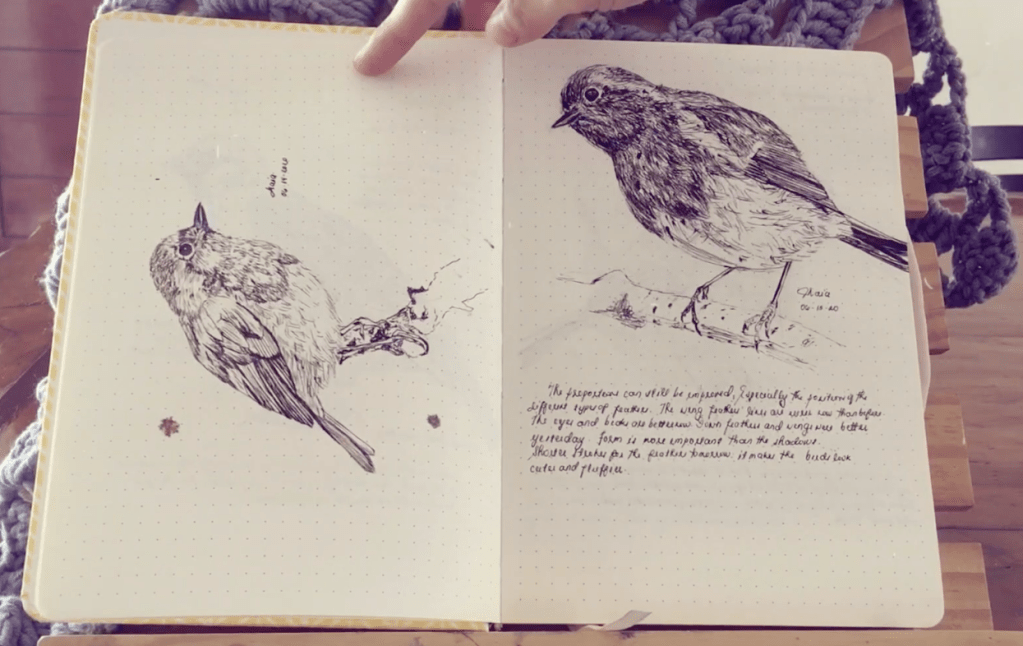 Shaia
06-19-2020
Shaia
06-19-20
The proportions can still be improved, Especially the positioning of the
different types of feathers. The wing feather lines are nicer now than before.
The eyes and beaks are better now. Down feathers and wings were better
yesterday. Form is more important than the shadows.
Shorter strokes for the feather tomorrow. it makes the birds look
cuter and fluffier.